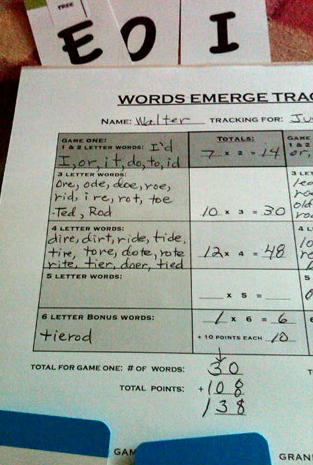 TREE
E O I
WORDS EMERGE TRA
NAME: Walter TRACKING FOR: Ju
GAME ONE:
1 & 2 LETTER WORDS: I'd
I, or, it, do, to, id
TOTALS:
7 x 2 = 14
GAME
1 & 2
or,
3 LETTER WORDS:
Ore, ode, doe, roe,
rid, ire, rot, toe
Ted, Rod
10 x 3 = 30
3 LET
old
4 LETTER WORDS:
dire, dirt, ride, tide,
tire, tore, dote, rote
rite, tier, doer, tied
12 x 4 = 48
4 L
5 LETTER WORDS:
x 5 =
5
6 LETTER BONUS WORDS:
tierod
1 x 6 = 6
+ 10 POINTS EACH 10
6
TOTAL FOR GAME ONE: # OF WORDS: 30
TOTAL POINTS: + 108
138
GAM
GRAN